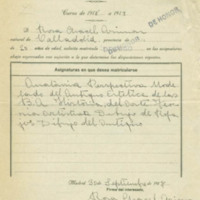 Curso de 1918 a 1919
DE HONOR
D. Rosa Chacel Arimon
natural de Valladolid provincia de
de edad, solicita matrícula en las asignaturas
abajo expresadas con sujeción a lo que determinan las disposiciones vigentes.
Asignaturas en que desea matricularse
Anatomía Perspectiva Mode
lado del Antiguo Estética de las
B. A. Historia del Arte Teoría
Dibujo de Ropa
jes Dibujo del Antiguo
Madrid 30 de Septiembre de 1918
Firma del interesado,
Rosa Chacel Arimon